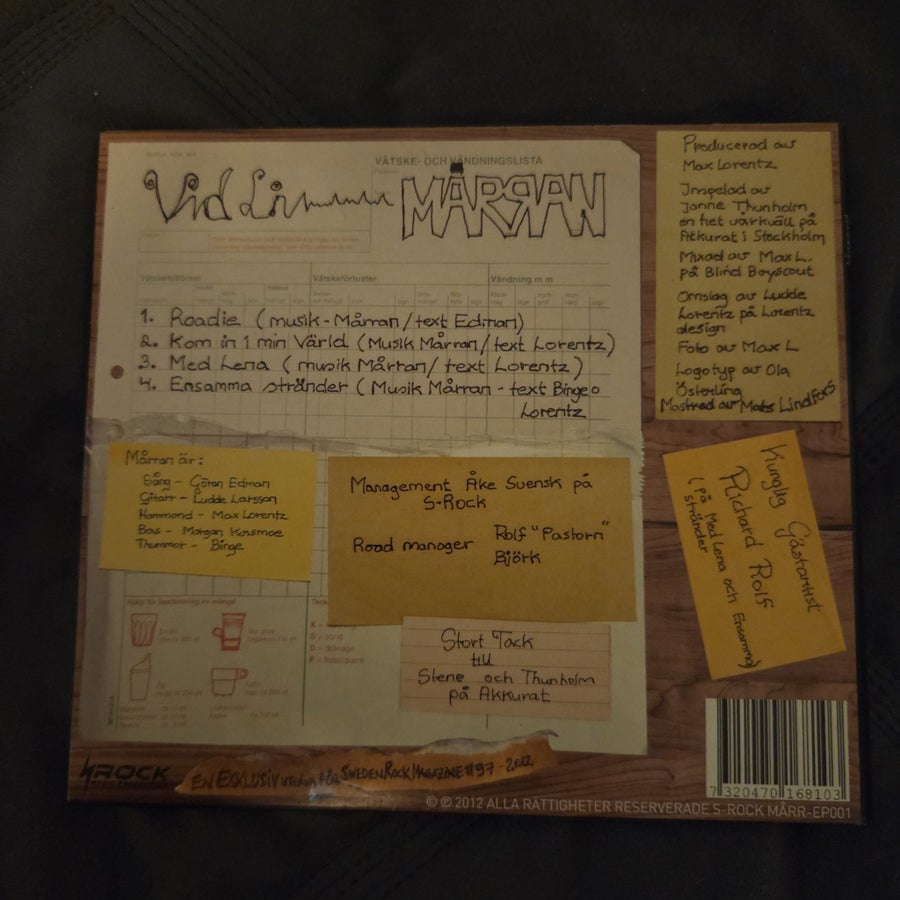 VÄTSKE- OCH VÄNDNINGSLISTA
Vid Li
MÅRRAN
Vätsketillförsel
Vätskeförluster
Vändning m m
1. Roadie (musik-Mårran/text Edman)
2. Kom in 1 min Värld (Musik Mårran/text Lorentz)
3. Med Lena (musik Mårran/text Lorentz)
4. Ensamma stränder (Musik Mårran - text Binge o
Lorentz
Mårran är:
Sång - Göran Edman
Gitarr - Ludde Larsson
Hammond - Max Lorentz
Bas - Morgan Korsmoe
Trummor - Binge
Management Åke Suensk på
S-Rock
Road manager Rolf "Pastorn"
Björk
Stort Tack
till
Stene och Thunholm
på Akkurat
Producerad av
Max Lorentz
Inspelad av
Janne Thunholm
en het vårkväll på
Akkurat i Stockholm
Mixad av Max L.
på Blind Boyscout
Omslag av Ludde
Lorentz på Lorentz
design
Foto av Max L
Logotyp av Ola
Österling
Mastrad av Mats Lindfors
Kunglig Gästartist
Richard Rolf
(på Med Lena och Ensamma
stränder)
Hjälp för bestämning av mängd
SROCK
EN EXKLUSIV UTGÅVA FÖR SWEDEN ROCK MAGAZINE #97 - 2012
7 320470 168103
© ℗ 2012 ALLA RÄTTIGHETER RESERVERADE S-ROCK MÅRR-EP001